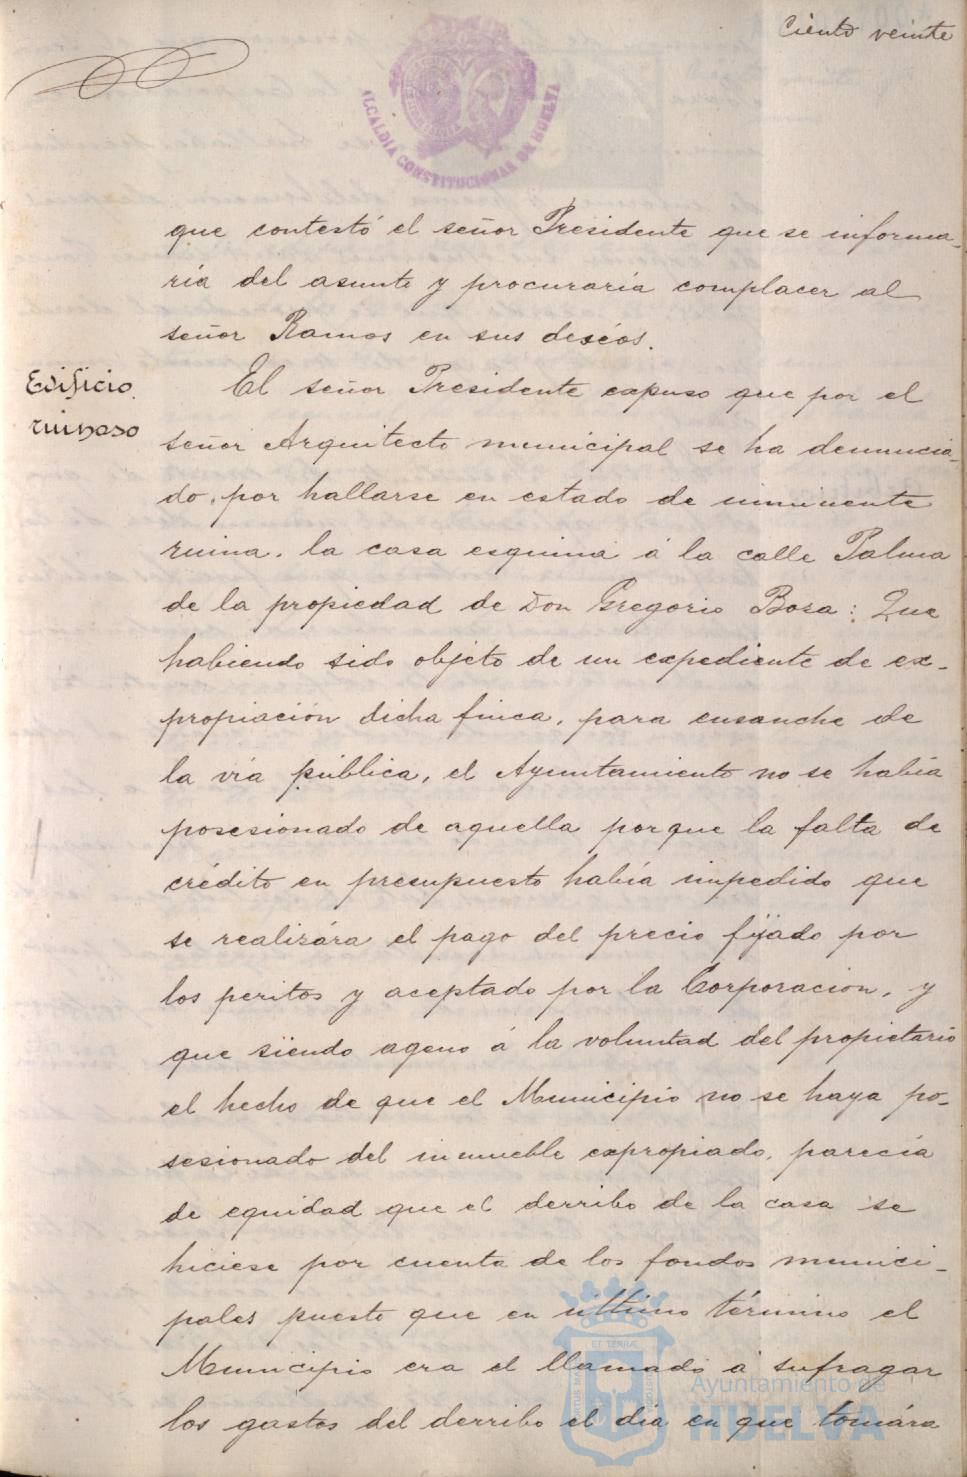 Ciento veinte
ALCALDIA CONSTITUCIONAL DE HUELVA
que contestó el señor Presidente que se informa-
ría del asunto y procuraría complacer al
señor Ramos en sus deséos.
Edificio
ruinoso
El señor Presidente expuso que por el
señor Arquitecto municipal se ha denuncia-
do, por hallarse en estado de inminente
ruina, la casa esquina á la calle Palma
de la propiedad de Don Gregorio Bosa: Que
habiendo sido objeto de un expediente de ex-
propiación dicha finca, para ensanche de
la vía pública, el Ayuntamiento no se había
posesionado de aquella porque la falta de
crédito en presupuesto había impedido que
se realizára el pago del precio fijado por
los peritos y aceptado por la Corporación, y
que siendo ageno á la voluntad del propietario
el hecho de que el Municipio no se haya po-
sesionado del inmueble expropiado, parecía
de equidad que el derribo de la casa se
hiciese por cuenta de los fondos munici-
pales puesto que en último término el
Municipio era el llamado á sufragar
los gastos del derribo el día en que tomára
Ayuntamiento de
HUELVA